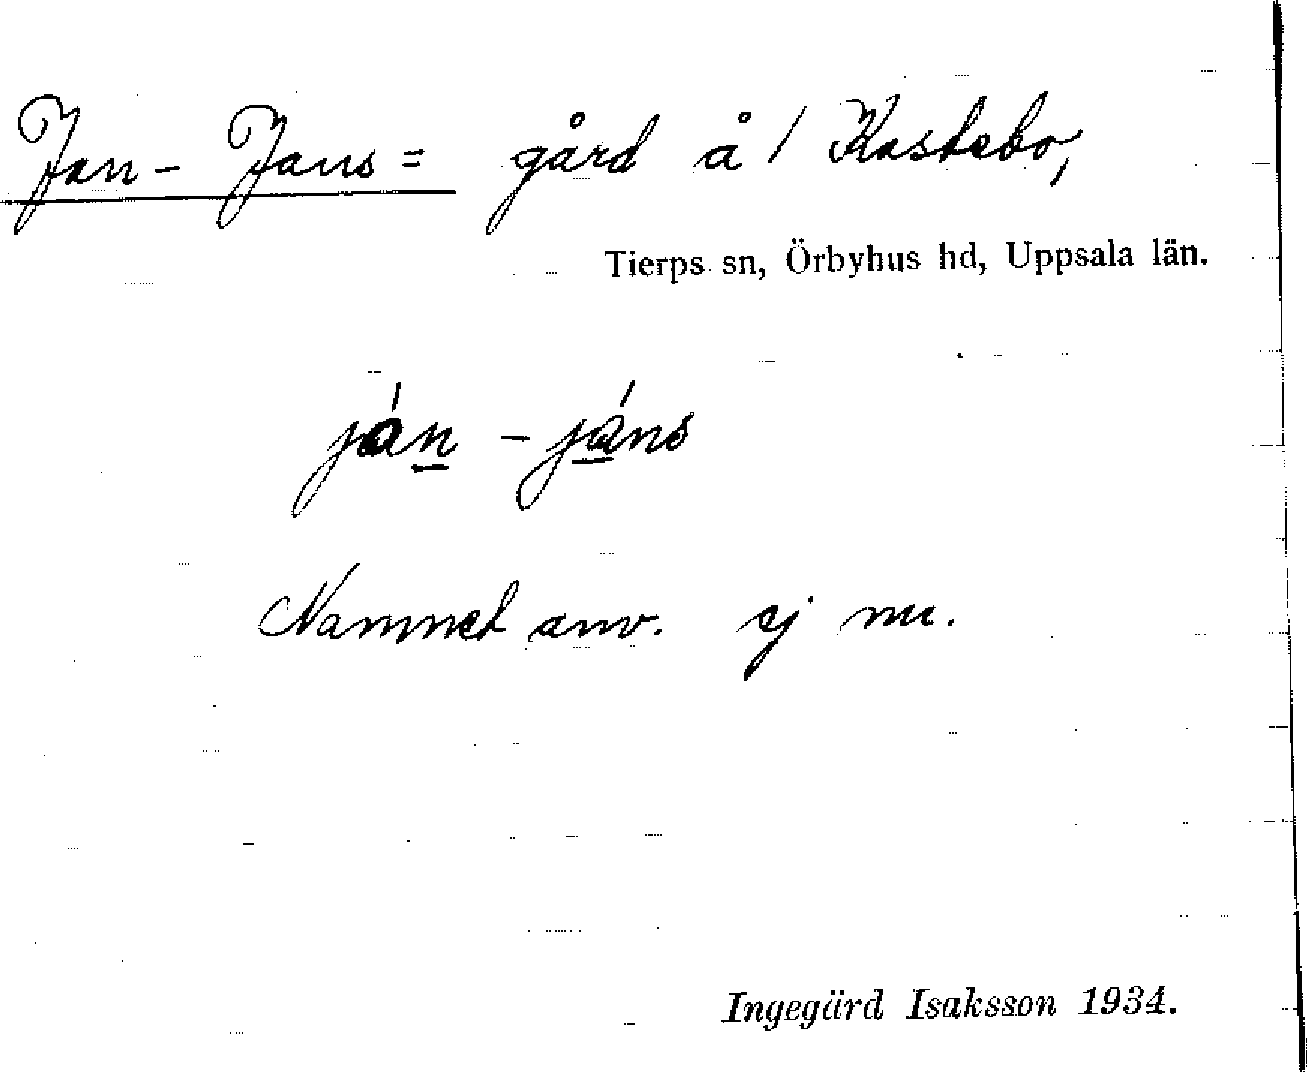 Jan-Jans= gård å / Kastebo,
Tierps sn, Örbyhus hd, Uppsala län.
ján - jáns
Namnet anv. ej nu.
Ingegärd Isaksson 1934.